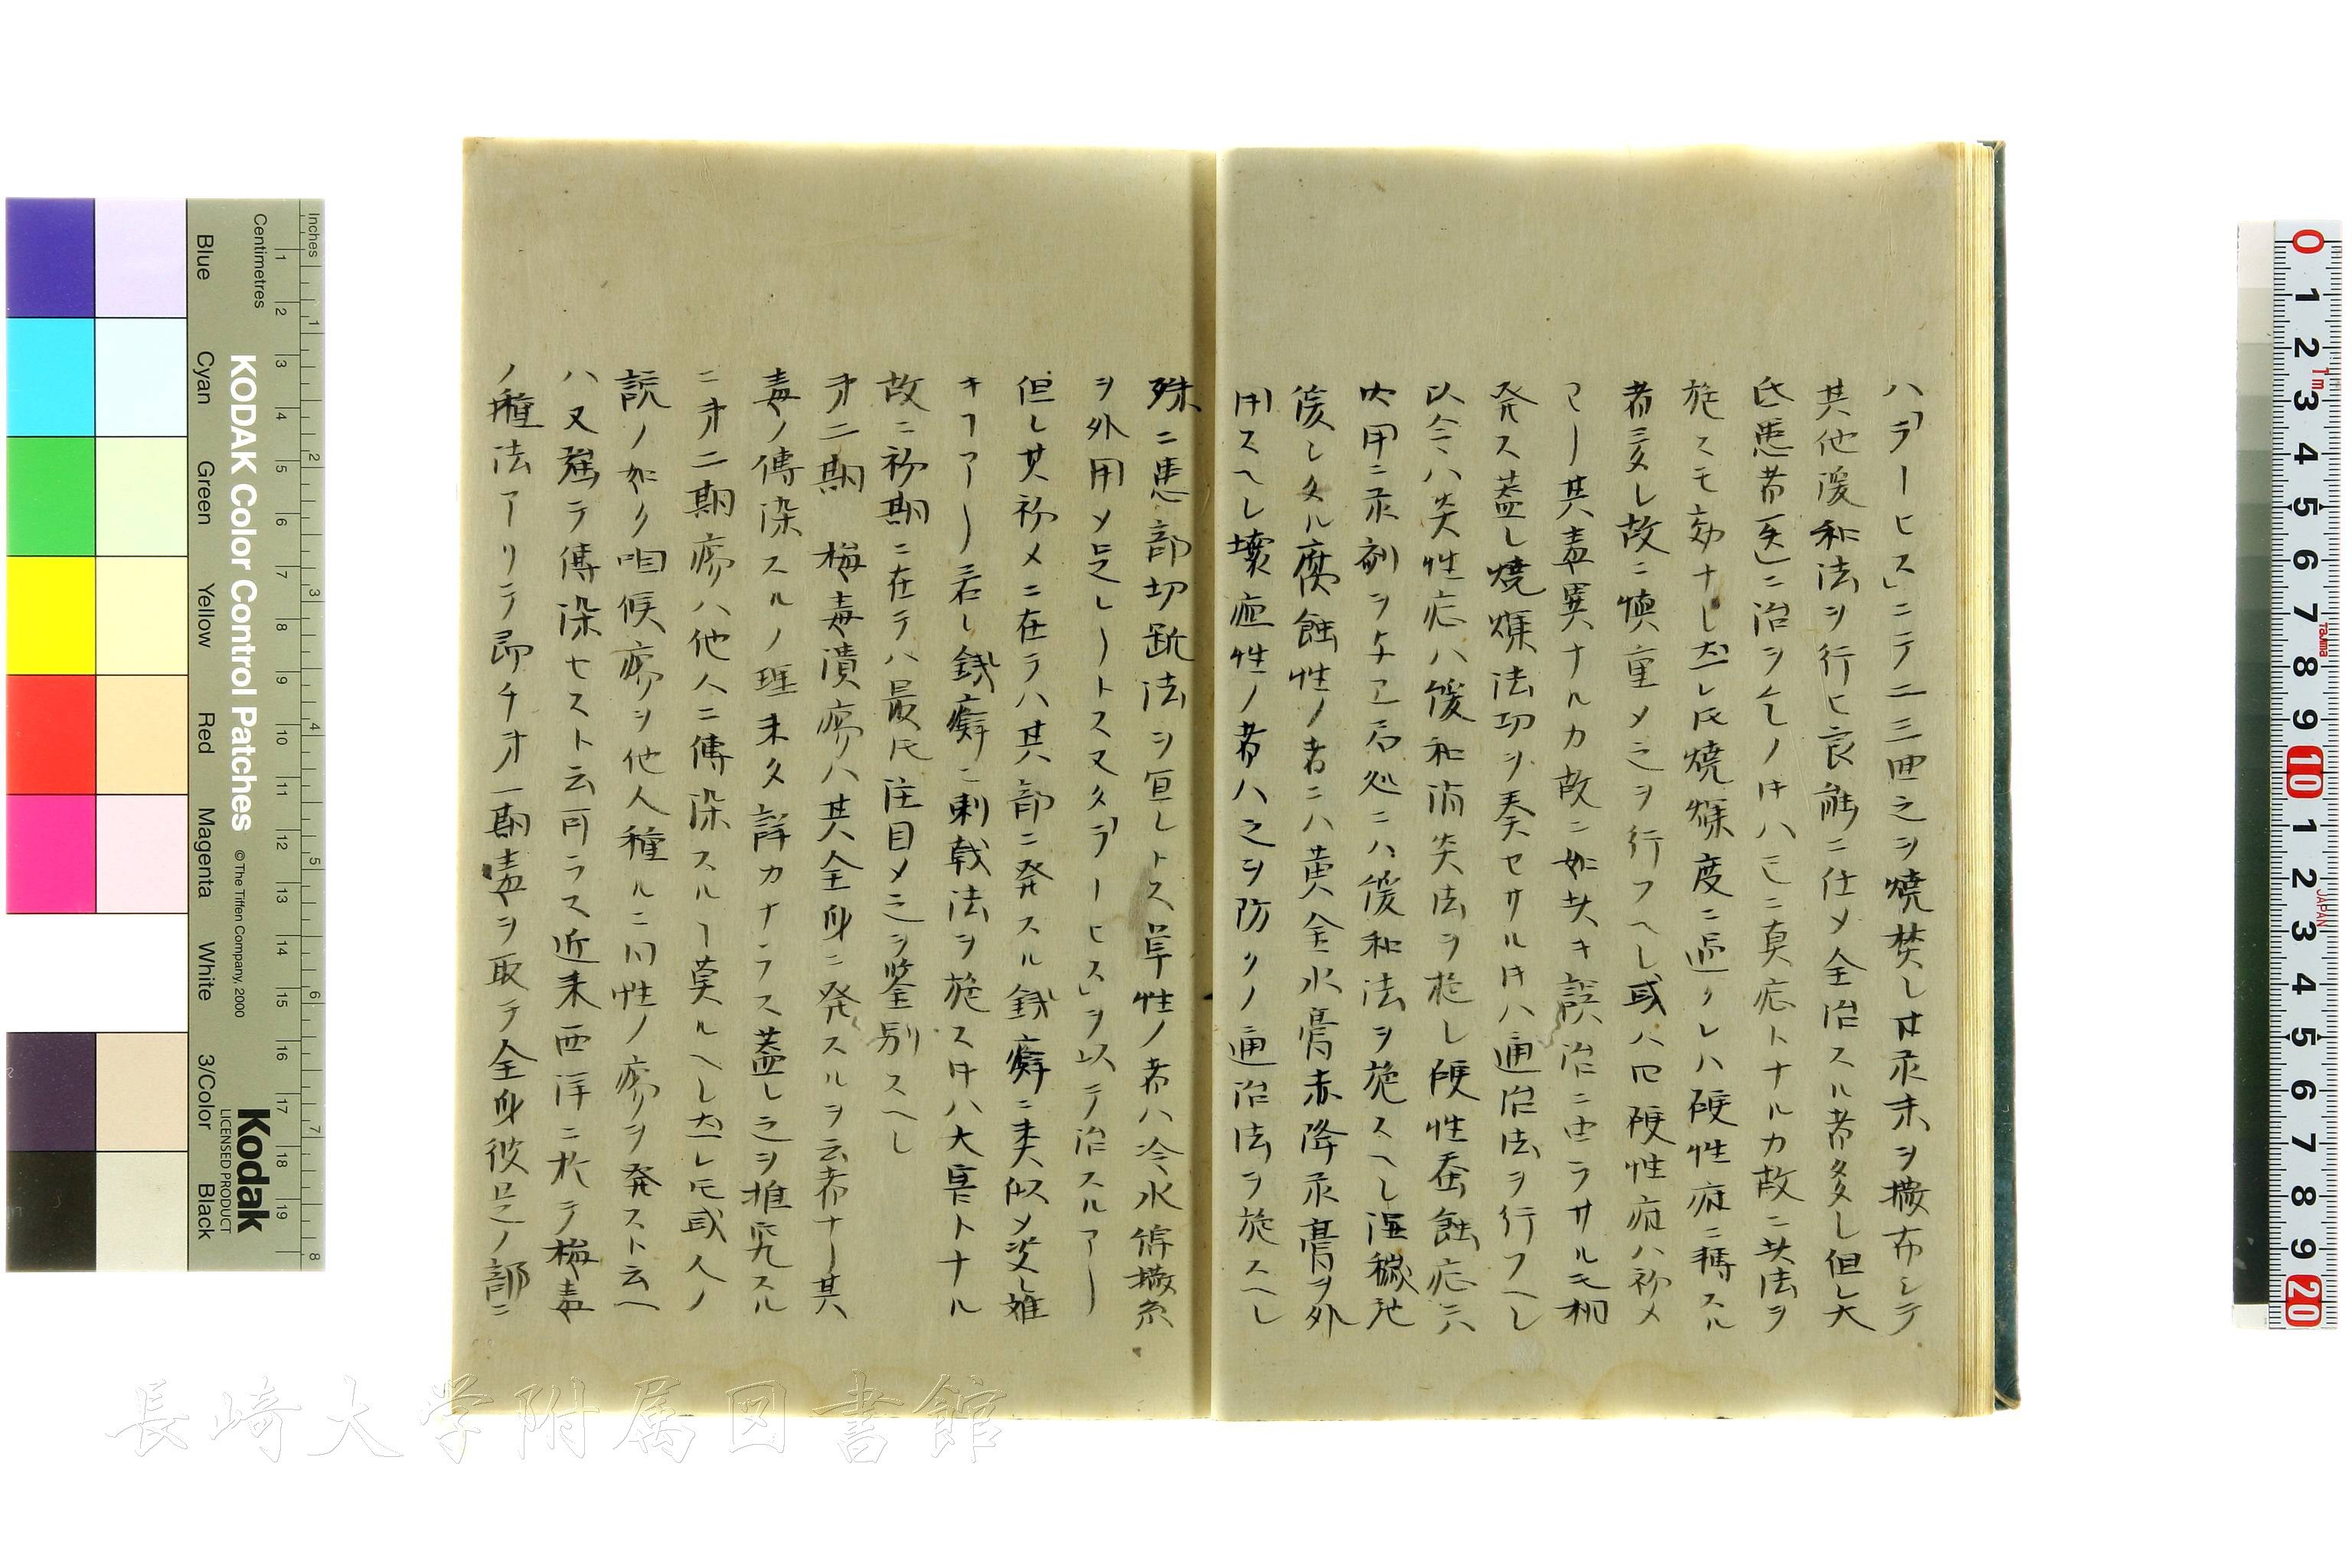 ハ「ラーヒス」ニテ二三回之ヲ焼焚し甘汞末ヲ撒布シテ
其他緩和法ヲ行ヒ良能ニ任メ全治スル者多し但し大
氏患者医ニ治ヲ乞ノ时ハ已ニ真症トナルカ故ニ此法ヲ
施スモ効ナし然レ圧焼爍度ニ過クレハ硬性症ニ轉スル
者亦多し故ニ慎重メ之ヲ行フヘし或ハ曰硬性症ハ初メ
ヨー其毒異ナルカ故ニ如此キ誤治ニ由ラサルモ初
発ス蓋し焼爍法功ヲ奏セサル时ハ通治法ヲ行フヘし
以令ハ炎性症ハ緩和消炎法ヲ施し硬性蚕蝕症ニハ
内用ニ汞剤ヲ与エ局処ニハ緩和法ヲ施スヘし汚穢弛
緩しタル腐蝕性ノ者ニハ黄金水膏赤降汞膏ヲ外
用スヘし壊疽性ノ者ハ之ヲ防クノ通治法ヲ施スヘし
殊ニ患部切断法ヲ宜しトス単性ノ者ハ冷水綿撒糸
ヲ外用メ足しートス又タ「ラーヒス」ヲ以テ治スルアー
但し其初メニ在テハ其部ニ発スル銭癬ニ類似メ姿し難
キヿアー若し銭癬ニ刺戟法ヲ施ス时ハ大害トナル
故ニ初期ニ在テハ最圧注目メ之ヲ鑒別スヘし
才二期 梅毒潰瘍ハ其全身ニ発スルヲ云者ナー其
毒ノ傳染スルノ理未タ詳カナラス蓋し之ヲ推究スル
ニ才二期瘍ハ他人ニ傳染スルヿ莫ルヘし然レ圧或人ノ
説ノ如ク咽喉瘍ヲ他人種ルニ同性ノ瘍ヲ発スト云ヘ
ハ又強テ傳染セスト云可ラス近来西洋ニ於テ梅毒
ノ種法アリテ即チ才一期毒ヲ取テ全身彼是ノ部ニ
長崎大学附属図書館
KODAK Color Control Patches
© The Tiffen Company, 2000
Kodak
LICENSED PRODUCT
Inches
Centimetres
Blue
Cyan
Green
Yellow
Red
Magenta
White
3/Color
Black